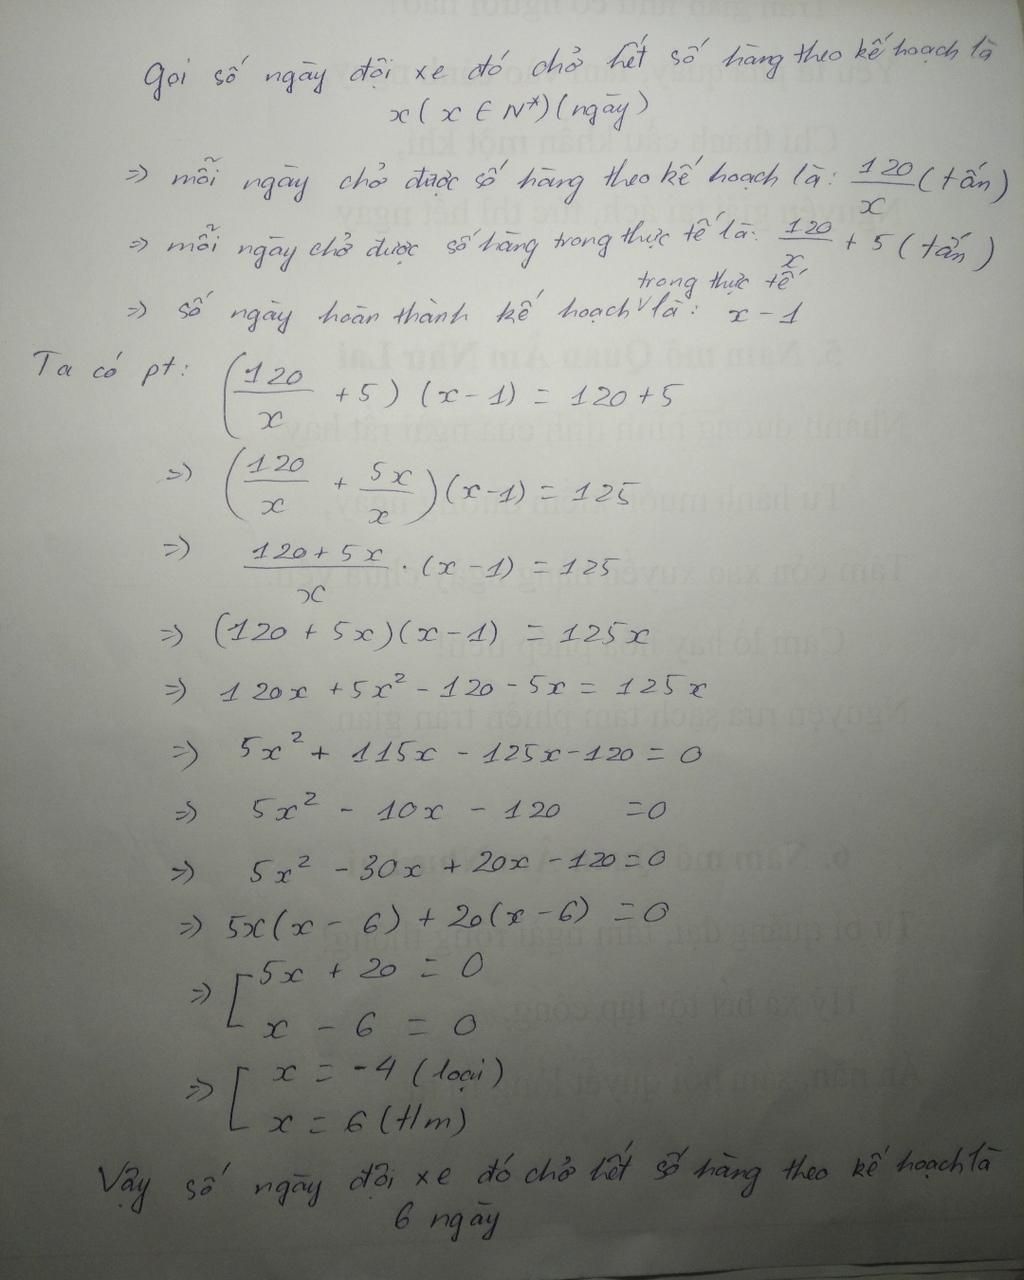 Gọi số ngày đội xe đó chở hết số hàng theo kế hoạch là
x ( x ∈ N*) (ngày)
=> mỗi ngày chở được số hàng theo kế hoạch là: 120/x (tấn)
=> mỗi ngày chở được số hàng trong thực tế là: 120/x + 5 (tấn)
=> số ngày hoàn thành kế hoạch trong thực tế là: x - 1
Ta có pt: (120/x + 5) (x - 1) = 120 + 5
=> (120/x + 5x/x) (x - 1) = 125
=> (120 + 5x)/x . (x - 1) = 125
=> (120 + 5x)(x - 1) = 125x
=> 120x + 5x² - 120 - 5x = 125x
=> 5x² + 115x - 125x - 120 = 0
=> 5x² - 10x - 120 = 0
=> 5x² - 30x + 20x - 120 = 0
=> 5x(x - 6) + 20(x - 6) = 0
=> [ 5x + 20 = 0
x - 6 = 0
=> [ x = -4 (loại)
x = 6 (t/m)
Vậy số ngày đội xe đó chở hết số hàng theo kế hoạch là
6 ngày